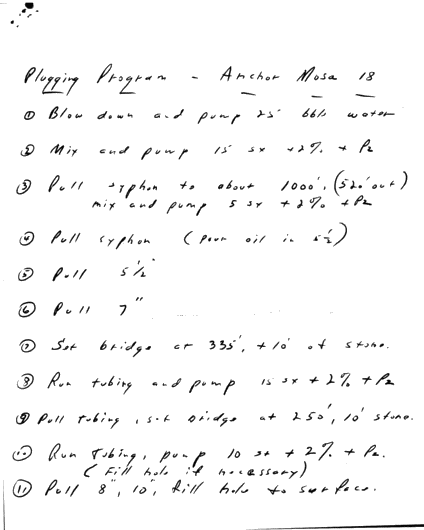 Plugging Program - Anchor Mosa 18
① Blow down and pump 25 bbls water
② Mix and pump 15 sx +2% + P2
③ Pull syphon to about 1000', (520' out)
mix and pump 5 sx + 2% + P2
④ Pull syphon (pour oil in 5½)
⑤ Pull 5½"
⑥ Pull 7"
⑦ Set bridge at 335', +10' of stone.
⑧ Run tubing and pump 15 sx + 2% + P2
⑨ Pull tubing, set bridge at 250', 10' stone.
⑩ Run Tubing, pump 10 sx + 2% + P2.
(Fill hole if necessary)
⑪ Pull 8", 10", fill hole to surface.